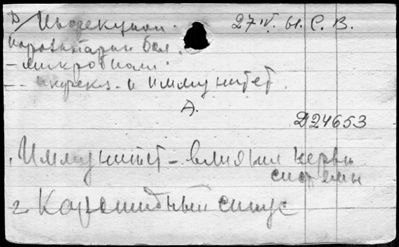 D Инфекции. 27 IV. 61. С. В.
паразитарн бол.
- микробиол.
-- инфекц. и иммунитет.
А.
D24653
1. Иммунитет - влияния нервн
системы
2. Каротидный синус